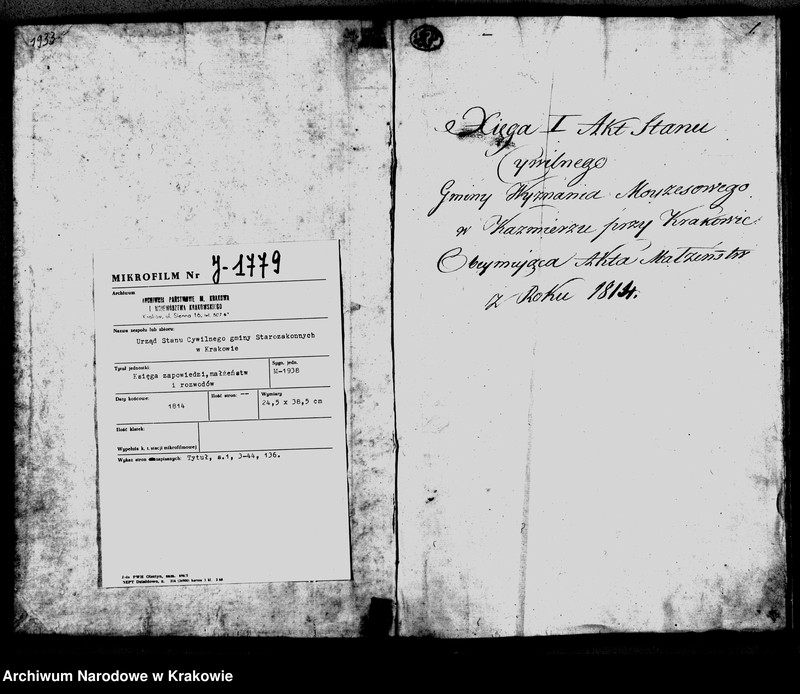 1933
MIKROFILM Nr J-1779
Archiwum
ARCHIWUM PAŃSTWOWE M. KRAKOWA
I WOJEWÓDZTWA KRAKOWSKIEGO
Kraków, ul. Sienna 16,
Nazwa zespołu lub zbioru:
Urząd Stanu Cywilnego gminy Starozakonnych
w Krakowie
Tytuł jednostki:
Księga zapowiedzi, małżeństw
i rozwodów
Sygn. jedn.
M-1938
Daty końcowe:
1814
Ilość stron: --
Wymiary
24,5 x 38,5 cm
Ilość klatek:
Wypełnia k. t. stacji mikrofilmowej
Wykaz stron niezapisanych: Tytuł, s.1, 3-44, 136.
1.
Xięga I Akt Stanu
Cywilnego
Gminy Wyznania Moyżesowego
w Kazimierzu przy Krakowie
Obeymuiąca Akta Małżeństw
z Roku 1814.
Archiwum Narodowe w Krakowie